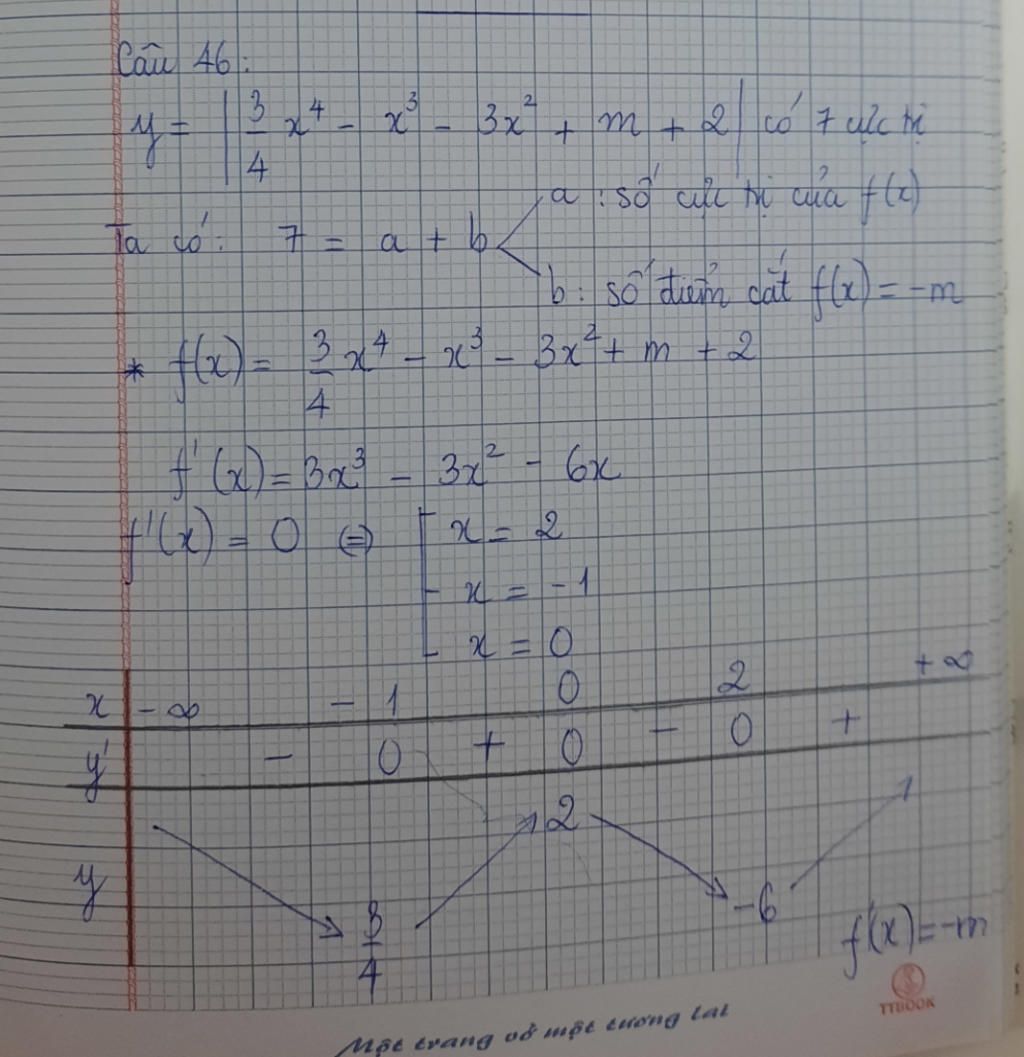 Câu 46:
y = | 3/4 x⁴ - x³ - 3x² + m + 2 | có 7 cực trị
a : số cực trị của f(x)
Ta có: 7 = a + b
b : số điểm cắt f(x) = -m
* f(x) = 3/4 x⁴ - x³ - 3x² + m + 2
f'(x) = 3x³ - 3x² - 6x
f'(x) = 0 ⇔ [ x = 2
x = -1
x = 0
x -∞ -1 0 2 +∞
y' - 0 + 0 - 0 +
y 3/4 2 -6
f(x) = -m
TTBOOK
Một trang vở một tương lai